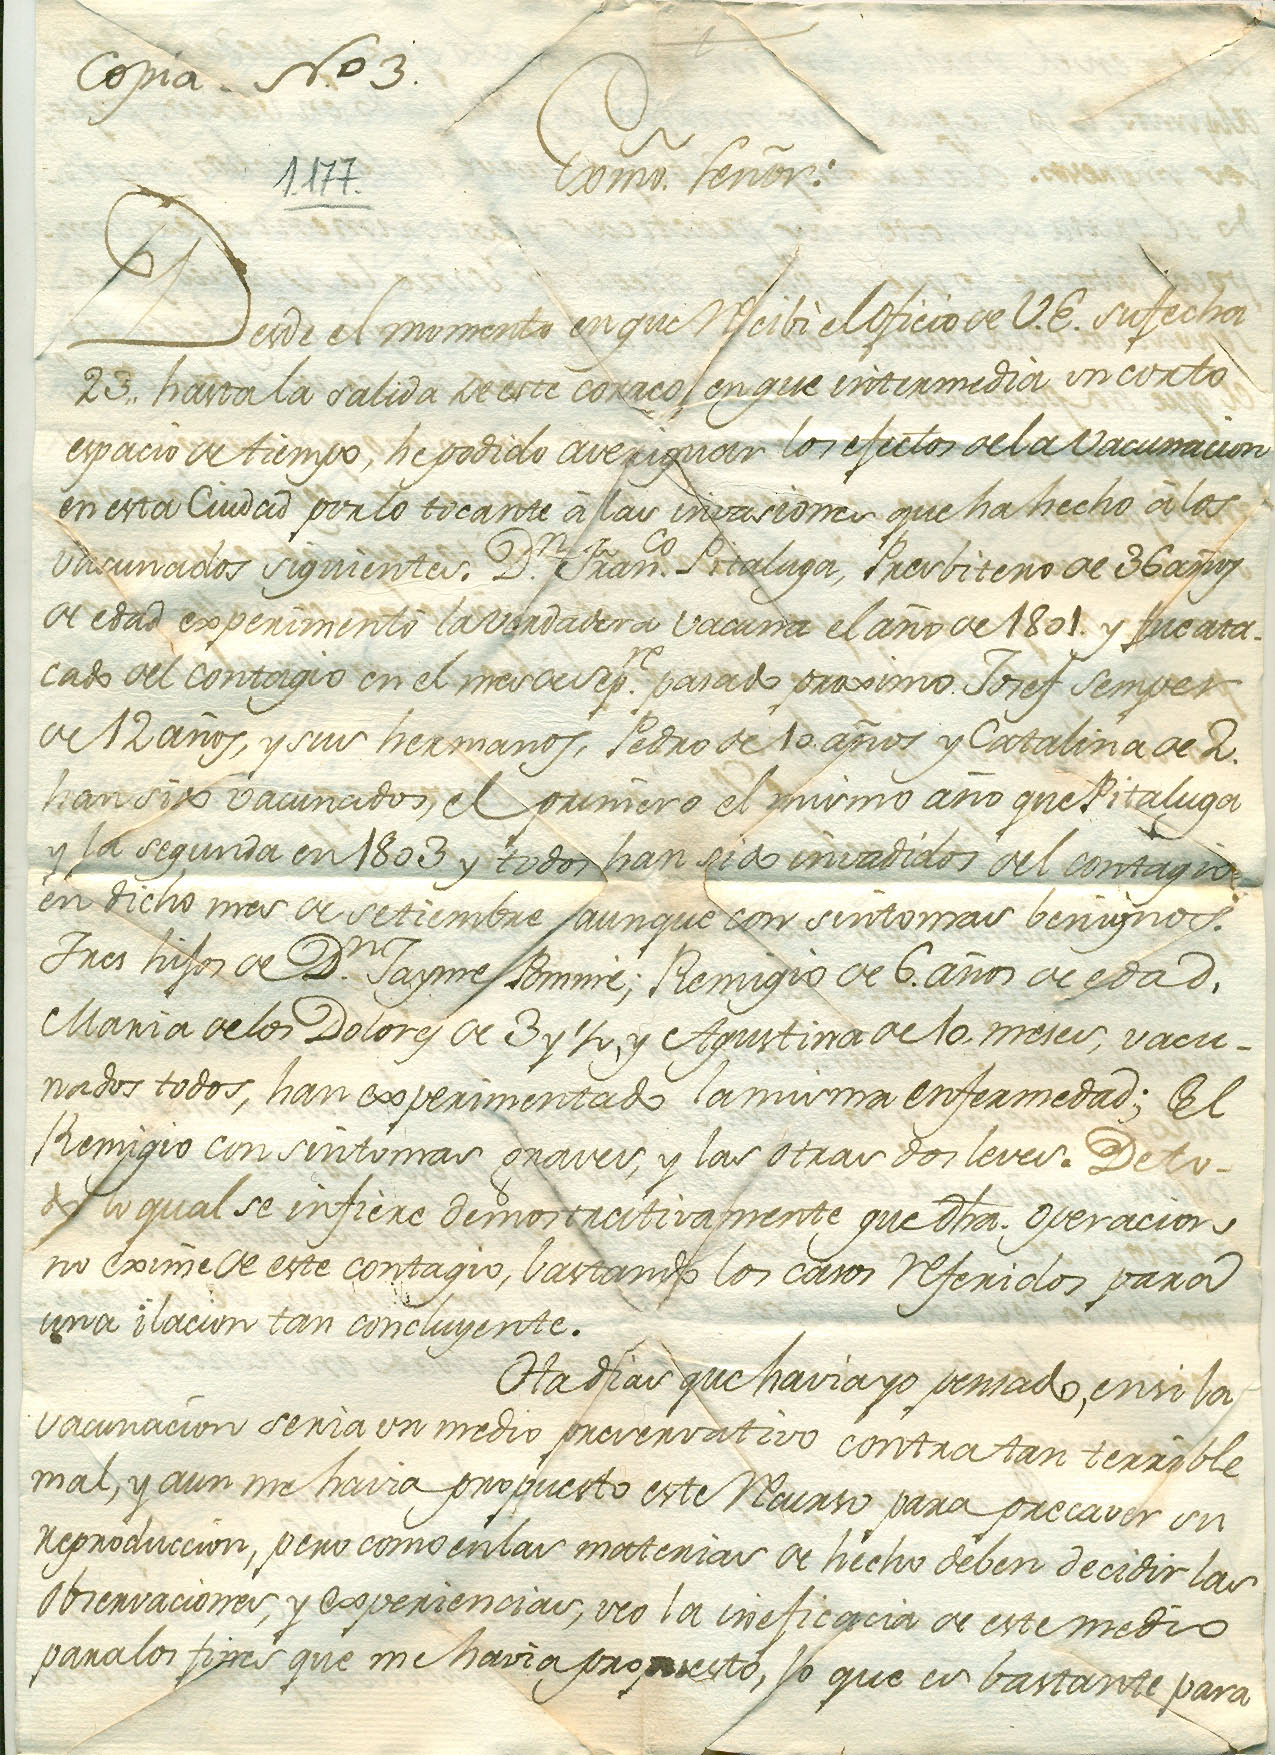 Copia. N.º 3.
1177.
Exmõ. Señor:
Desde el momento en que Recibi el Oficio de V.E. su fecha
23,, hasta la salida de este correo, en que intermedia un corto
espacio de tiempo, he podido averiguar los efectos de la Vacunacion
en esta Ciudad por lo tocante à las invasiones que ha hecho à los
vacunados siguientes. D.n Fran.co Pitaluga, Presbitero de 36 años
de edad experimentó la verdadera vacuna el año de 1801. y fue ata-
cado del contagio en el mes de sep.re pasado proximo. Josef Semper
de 12 años, y sus hermanos, Pedro de 10. años y Catalina de 2.
han sido vacunados, el primero el mismo año que Pitaluga
y la segunda en 1803 y todos han sido invadidos del contagio
en dicho mes de setiembre aunque con sintomas benignos.
Tres hijos de D.n Jayme Bonmié; Remigio de 6. años de edad,
Maria de los Dolores de 3 y ½, y Agustina de 10. meses, vacu-
nados todos, han experimentado la misma enfermedad; El
Remigio con sintomas graves, y las otras dos leves. De to-
do lo qual se infiere demostrativamente que dha. operacion
no exime de este contagio, bastando los casos Referidos para
una ilacion tan concluyente.
Ha dias que havia yo pensado, en si la
vacunacion seria un medio preservativo contra tan terrible
mal, y aun me havia propuesto este Recurso para precaver su
reproduccion, pero como en las materias de hecho deben decidir las
observaciones, y experiencias, veo la ineficacia de este medio
para los fines que me havia propuesto, lo que es bastante para